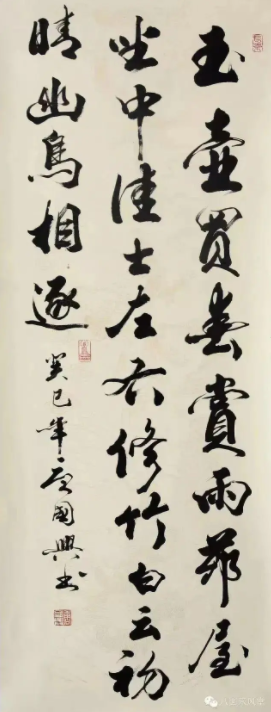 玉壺買春賞雨茆屋
坐中佳士左右修竹白云初
晴幽鳥相逐
癸巳年國興书